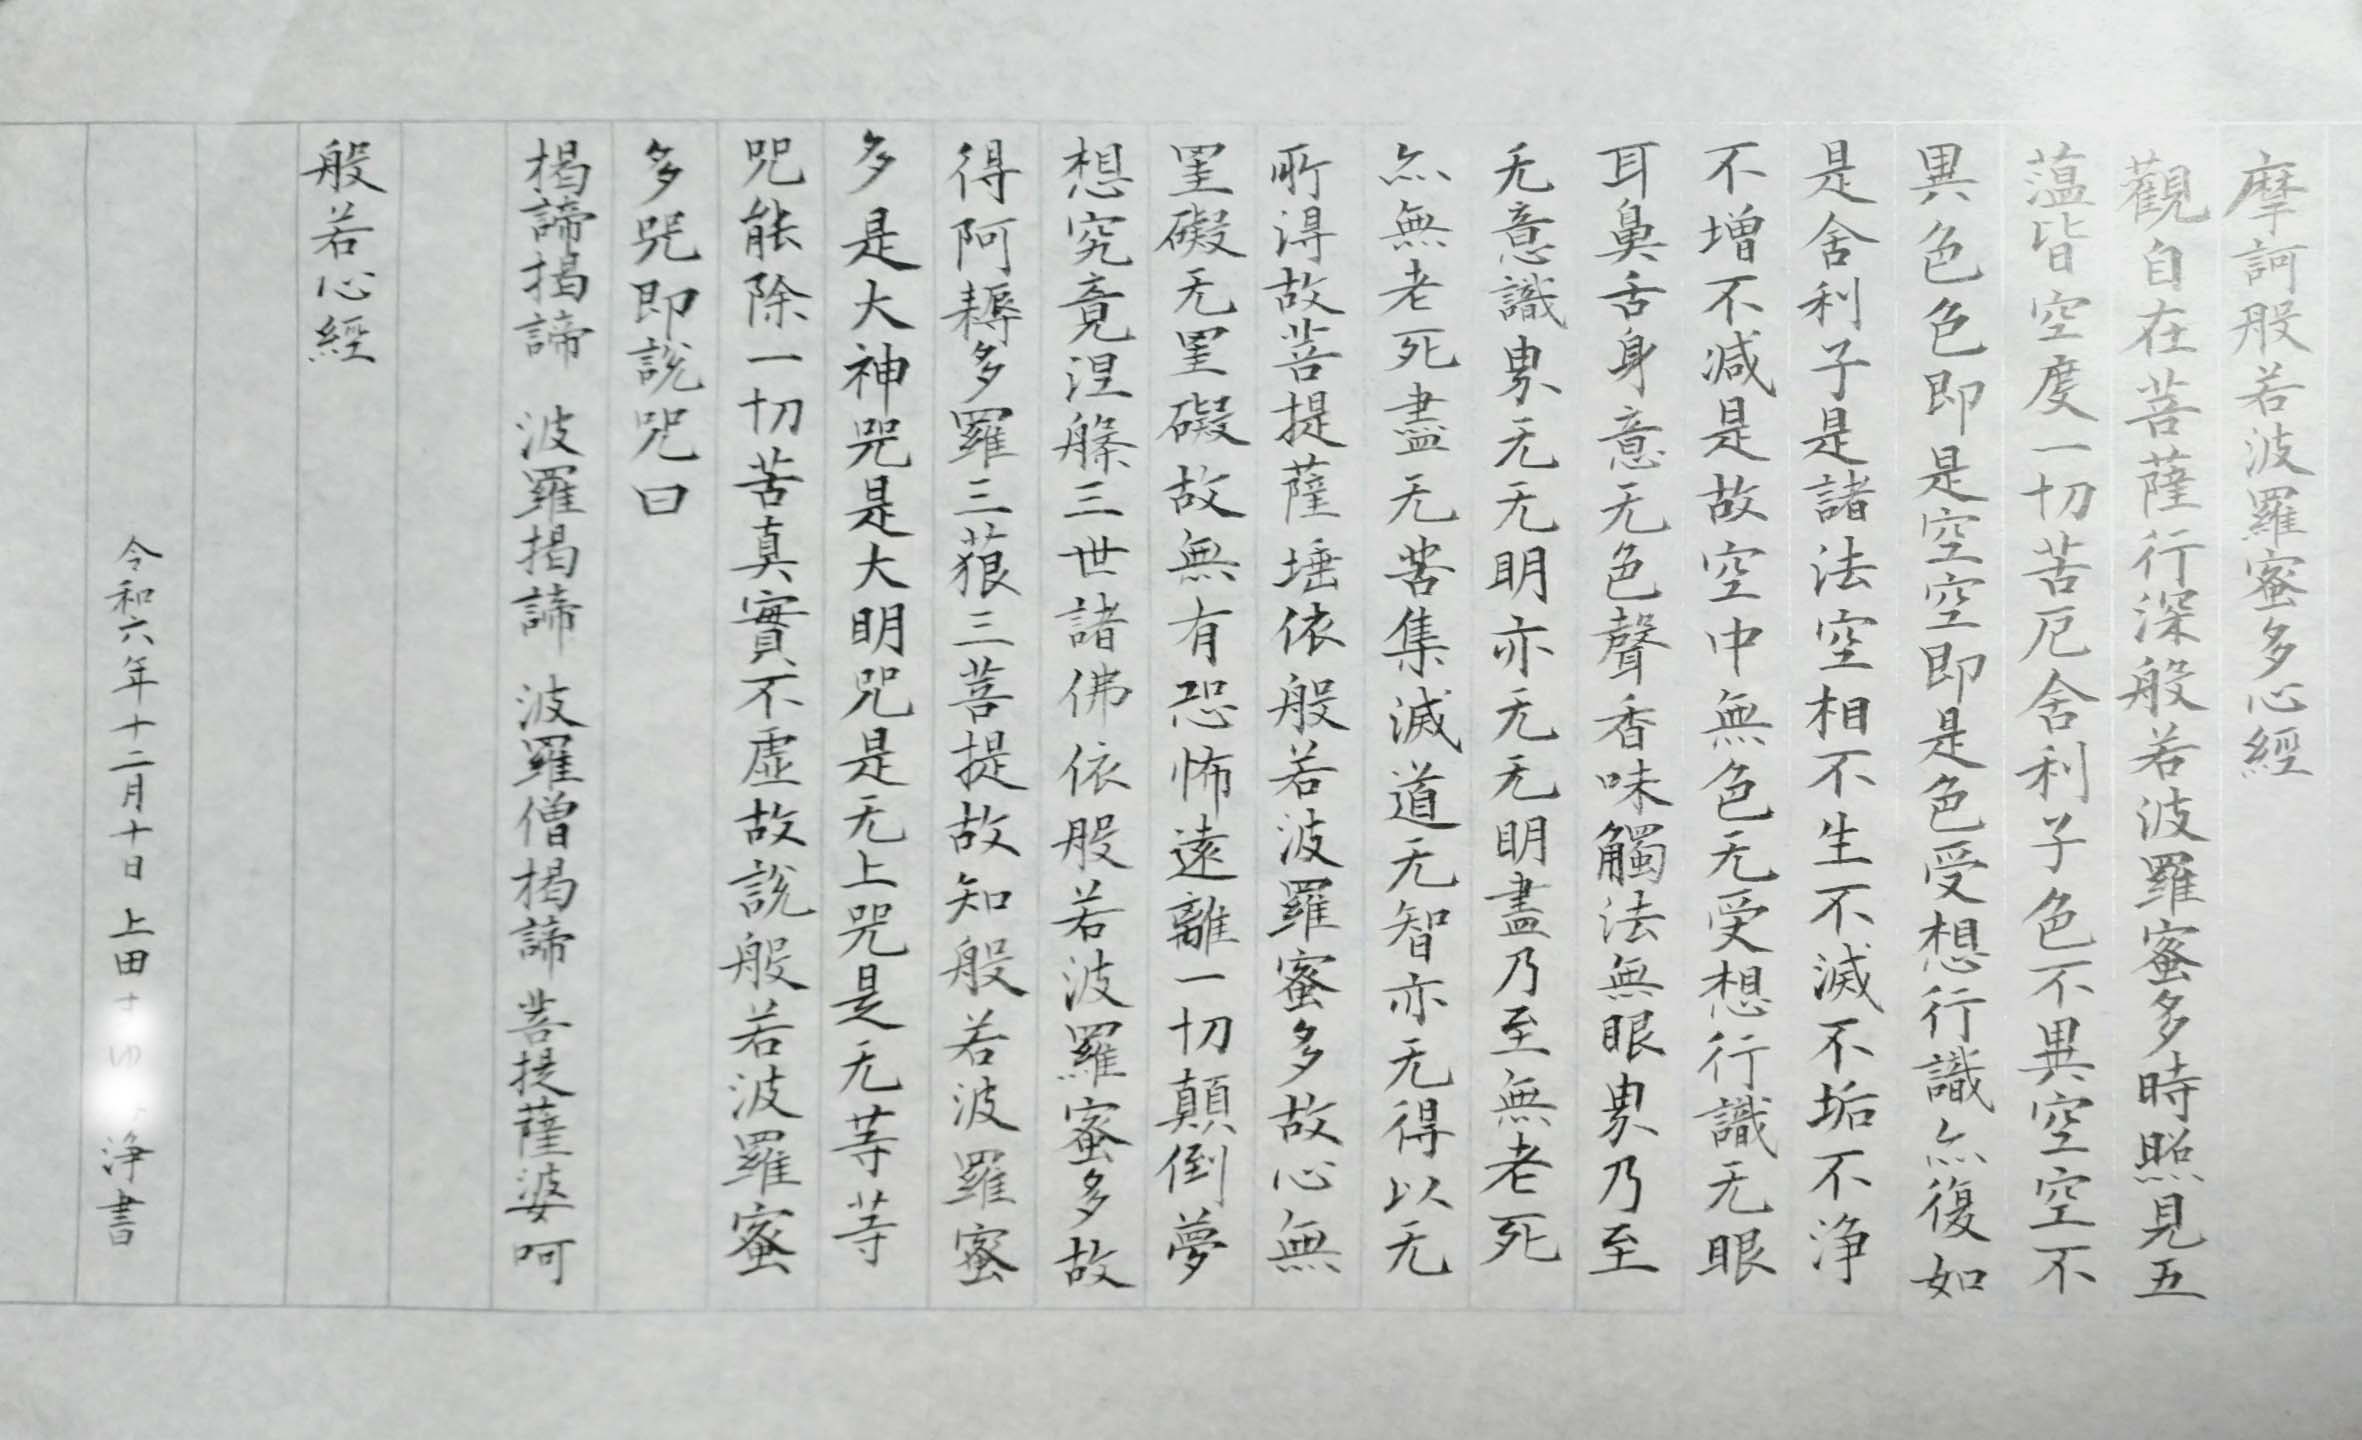 摩訶般若波羅蜜多心經
觀自在菩薩行深般若波羅蜜多時照見五
薀皆空度一切苦厄舍利子色不異空空不
異色色即是空空即是色受想行識亦復如
是舍利子是諸法空相不生不滅不垢不浄
不增不減是故空中無色无受想行識无眼
耳鼻舌身意无色聲香味觸法無眼界乃至
无意識界无无明亦无无明盡乃至無老死
亦無老死盡无苦集滅道无智亦无得以无
所淂故菩提薩埵依般若波羅蜜多故心無
罣礙无罣礙故無有恐怖遠離一切顛倒夢
想究竟涅槃三世諸佛依般若波羅蜜多故
得阿耨多羅三藐三菩提故知般若波羅蜜
多是大神咒是大明咒是无上咒是无等等
咒能除一切苦真實不虛故説般若波羅蜜
多咒即説咒曰
揭諦揭諦 波羅揭諦 波羅僧揭諦 菩提薩婆呵
般若心經
令和六年十二月十日 上田 浄書